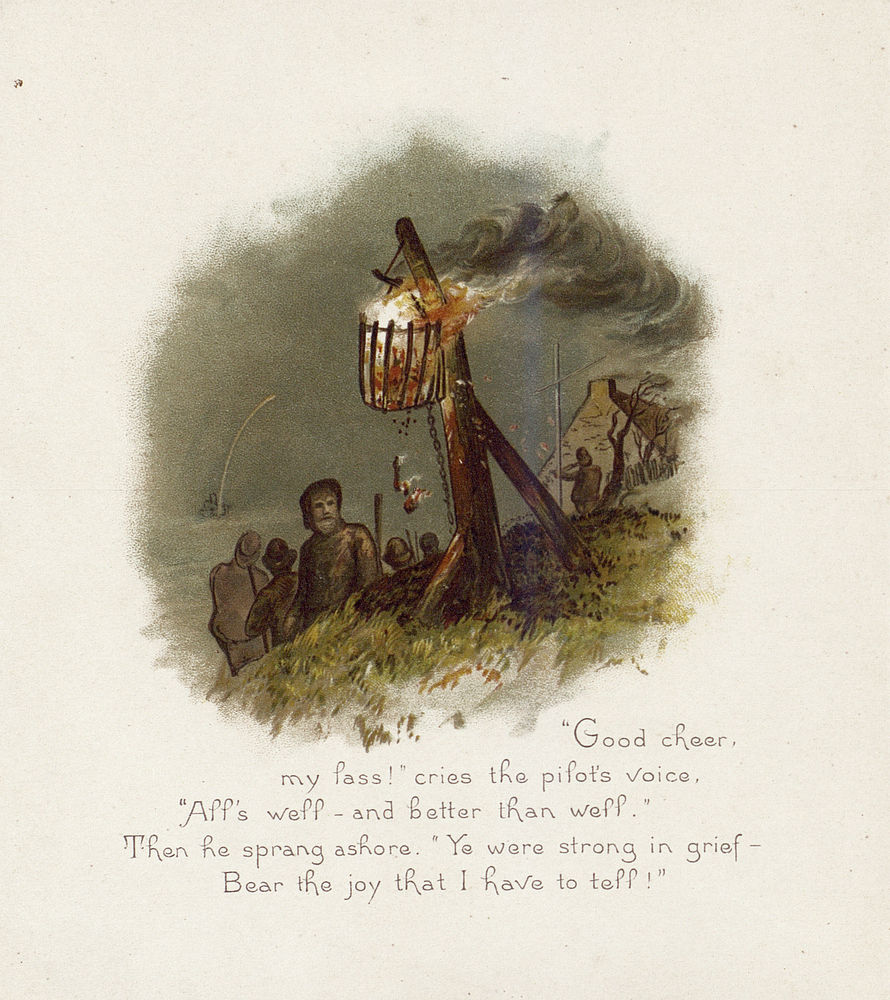 "Good cheer,
my lass!" cries the pilot's voice,
"All's well - and better than well."
Then he sprang ashore. "Ye were strong in grief -
Bear the joy that I have to tell!"